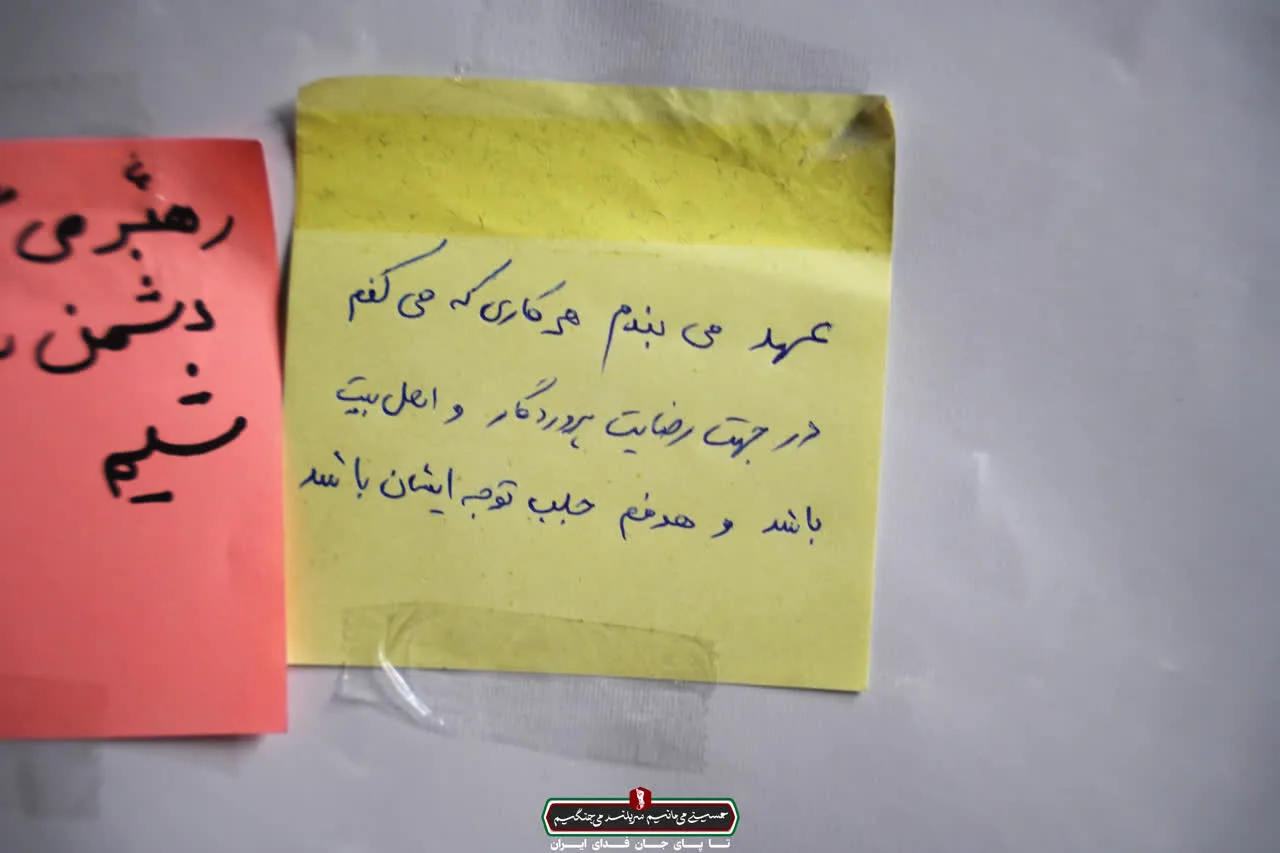 عهد می بندم هر کاری که می کنم
در جهت رضایت پروردگار و اهل بیت
باشد و هدفم جلب توجه ایشان باشد
رهبر می
دشمن
حسینی می‌مانیم سربلند می‌جنگیم
تا پای جان فدای ایران